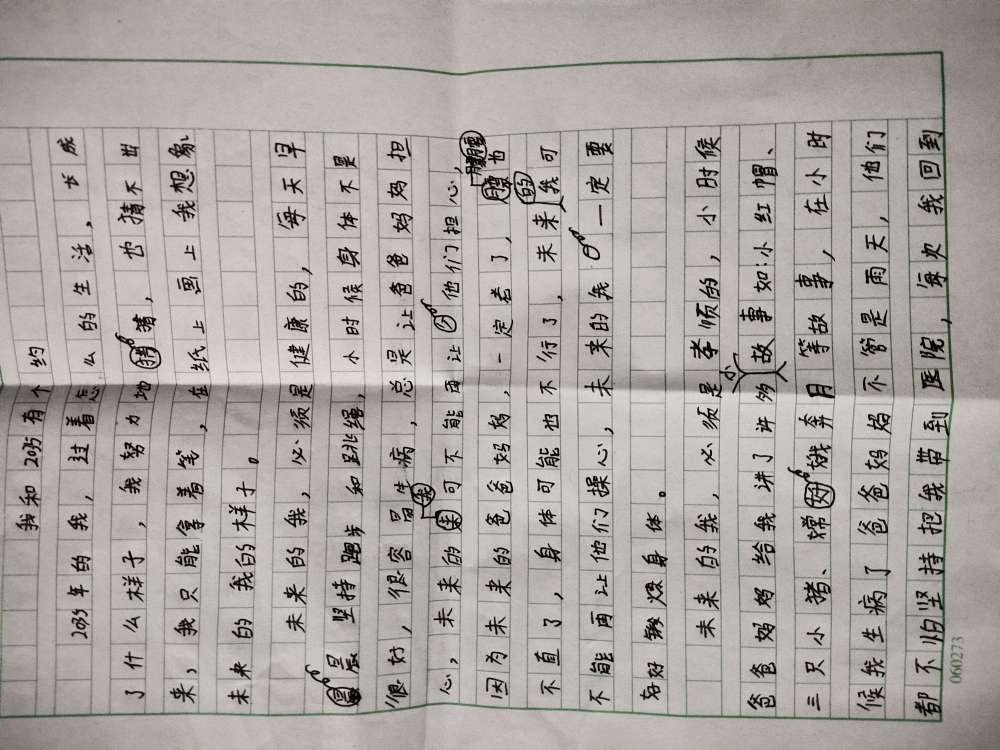 我和2035有个约
2035年的我,过着怎么的生活,长成
了什么样子,我努力地猜,也猜不出
来,我只能拿着笔,在纸上画上我想象
未来的我的样子。
未来的我,必须是健康的,每天早
晨坚持跑步和跳绳,小时候身体不是
很好,很容易生病,总是让爸爸妈妈担
心,未来的我可不能再让他们担心,
因为未来的爸爸妈妈,一定老了,腰也
不直了,身体可能也不行了,未来的我可
不能再让他们操心,未来的我一定要
好好锻炼身体。
未来的我,必须是孝顺的,小时候
爸爸妈妈给我讲了许多小故事如:小红帽、
三只小猪、嫦娥奔月等故事,在小时
候我生病了爸爸妈妈不管是雨天,他们
都不怕坚持把我带到医院,每次我回到
060273